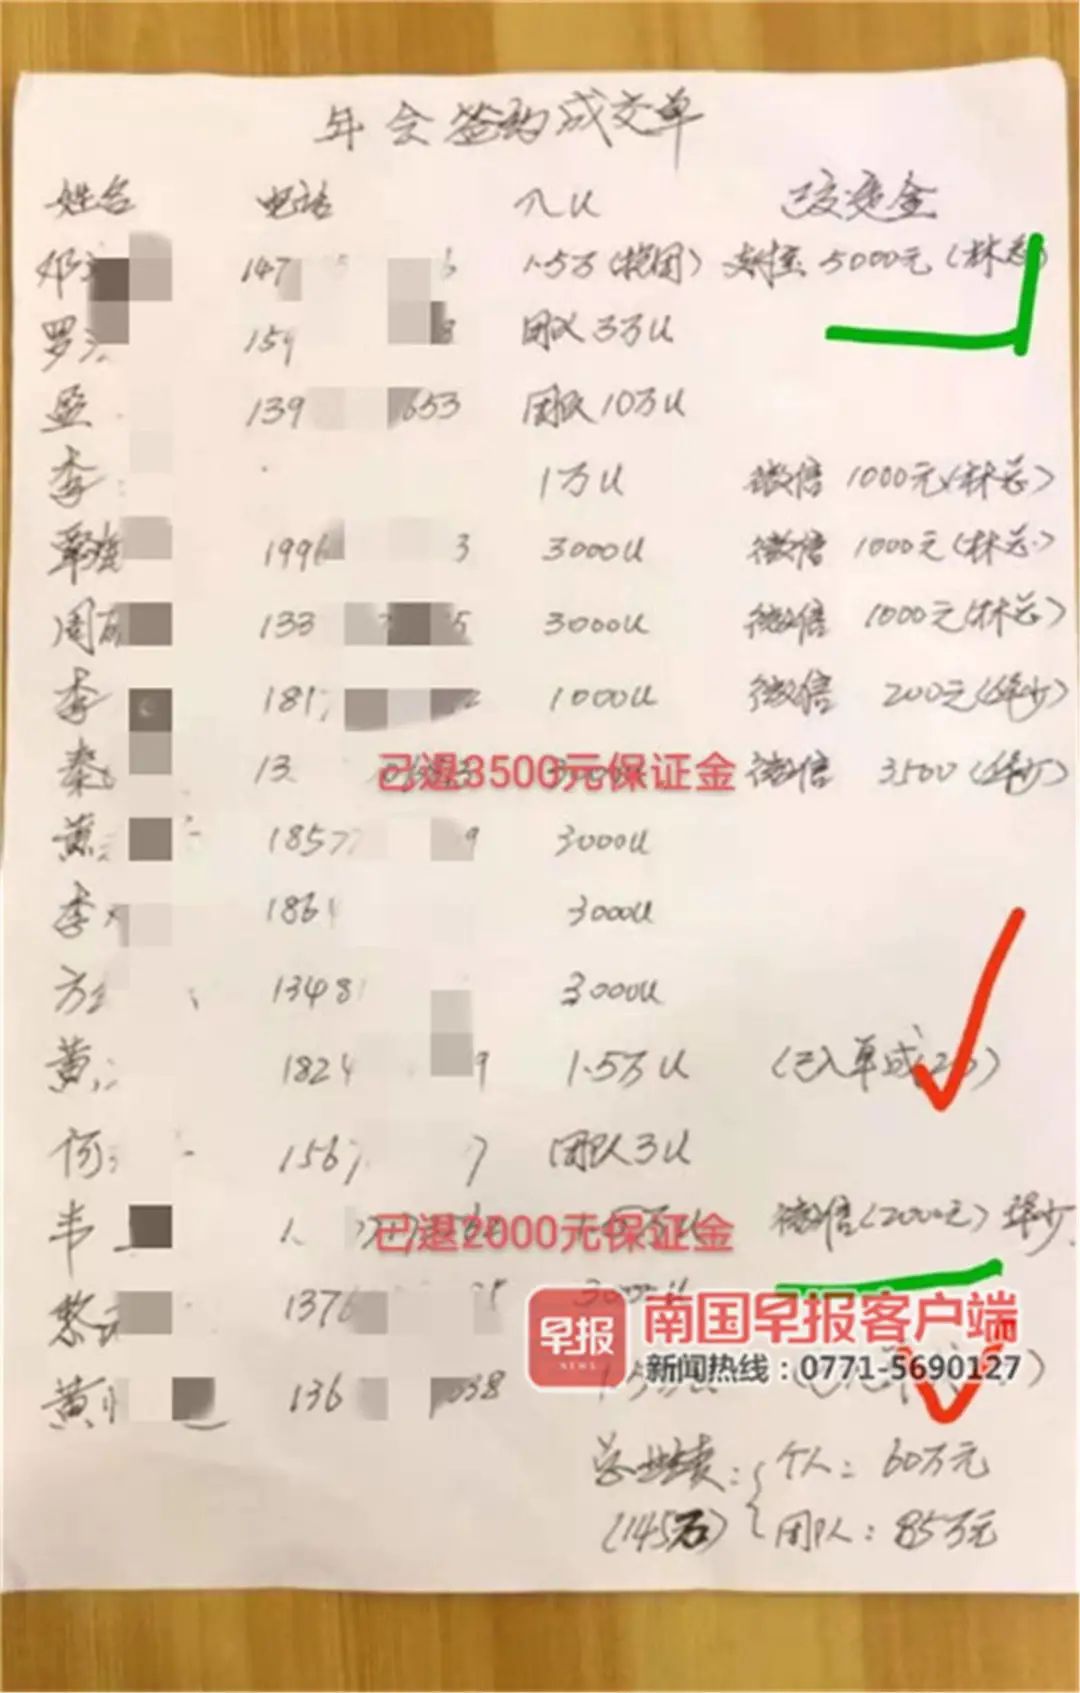 年会签约成交单
姓名 电话 入U 已交定金
邓 147 6 1.5万(找团) 支付宝 5000元(林总)
罗 159 8 团队3万U
蓝 139 653 团队10万U
李 1万U 微信 1000元(林总)
覃 1996 3 3000U 微信 1000元(林总)
周 133 5 3000U 微信 1000元(林总)
李 181 1000U 微信 200元(华少)
秦 13 已退3500元保证金 微信 3500(华少)
黄 1857 9 3000U
李 1861 3000U
方 13481 3000U
黄 1824 9 1.5万U (已入单成
何 1567 7 团队3U
韦 已退2000元保证金 微信(2000元)华少
1376 3000U
早报
NEWS
南国早报客户端
新闻热线:0771-5690127
黄 136 38
总业绩: 个人: 60万元
(145万) 团队: 85万元